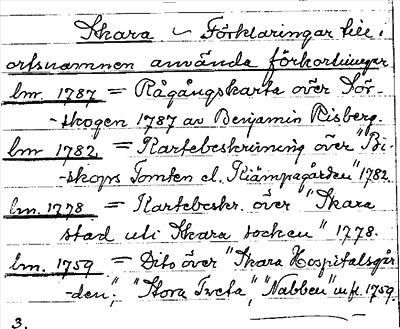 Skara – Förklaringar till i
ortsnamnen använda förkortningar
lm. 1787 = Rågångskarta över Dör-
-skogen 1787 av Benjamin Risberg.
lm 1782 = Kartebeskrivning över "Bi-
-skops Tomten el. Kiämpagården" 1782.
lm. 1778 = Kartebeskr. över "Skara
stad uti Skara socken" 1778.
lm. 1759 = Dito över "Skara Hospitalsgår
-den", "Stora Tveta", "Nabben" m.fl. 1759.
3.